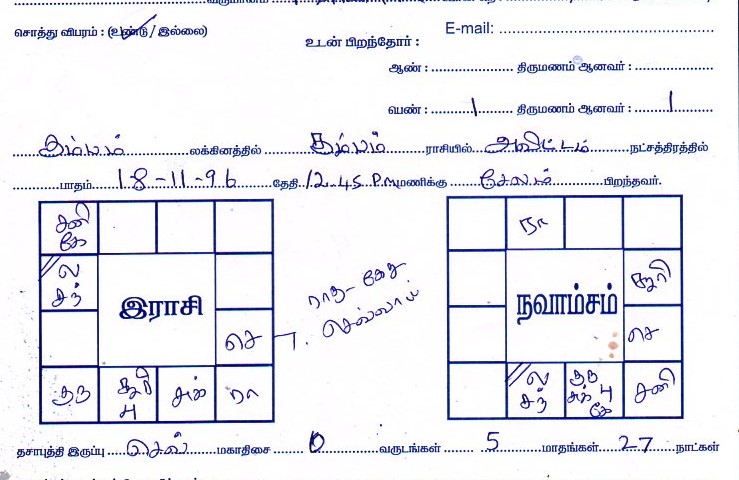 சொத்து விபரம் : (உண்டு / இல்லை)
உடன் பிறந்தோர் :
E-mail:
ஆண் : திருமணம் ஆனவர் :
பெண் : 1 திருமணம் ஆனவர் : 1
கும்பம் லக்கினத்தில் கும்பம் ராசியில் அவிட்டம் நட்சத்திரத்தில்
பாதம் 18-11-96 தேதி 12-45 P.M மணிக்கு சேலம் பிறந்தவர்.
சனி
கே
நா
ல
சந்
சூரி
இராசி
ராகு - கேது
செவ்வாய்
நவாம்சம்
செ
செ
குரு
சூரி
பு
சுக்
ரா
ல
சந்
குரு
சுக் பு
கே
சனி
தசாபுத்தி இருப்பு செவ் மகாதிசை 0 வருடங்கள் 5 மாதங்கள் 27 நாட்கள்